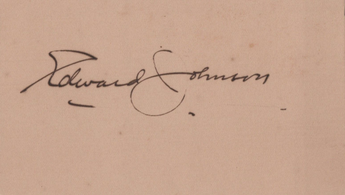 Edward Johnson